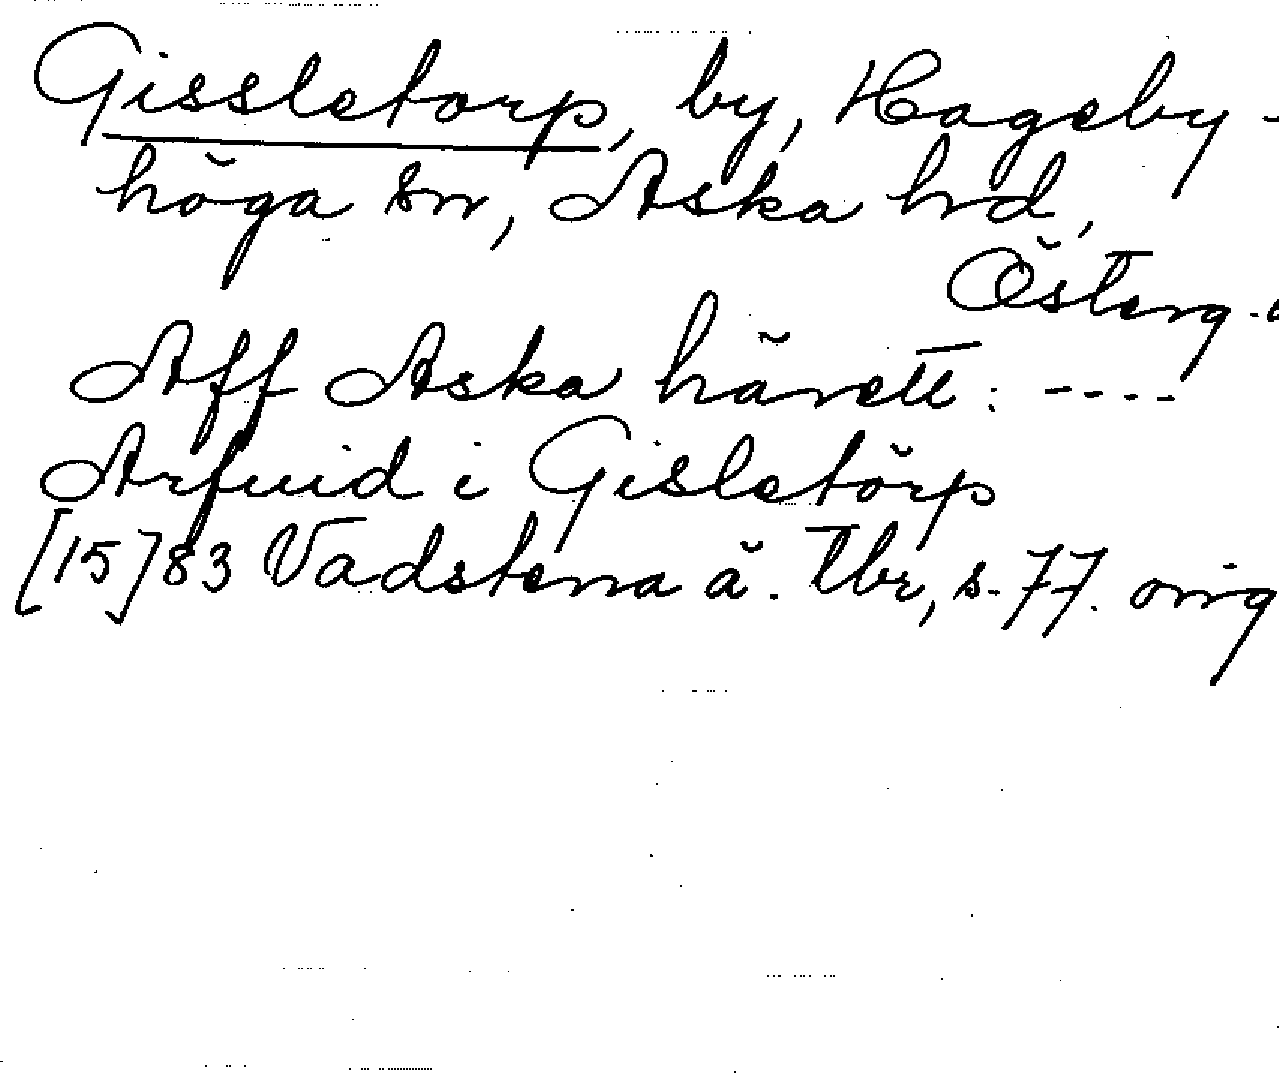 Gissletorp, by, Hageby-
höga sn, Aska hd,
Österg.
Aff Aska härett: ----
Arfuid i Gisletörp
[15]83 Vadstena ä. Tbr, s. 77. orig